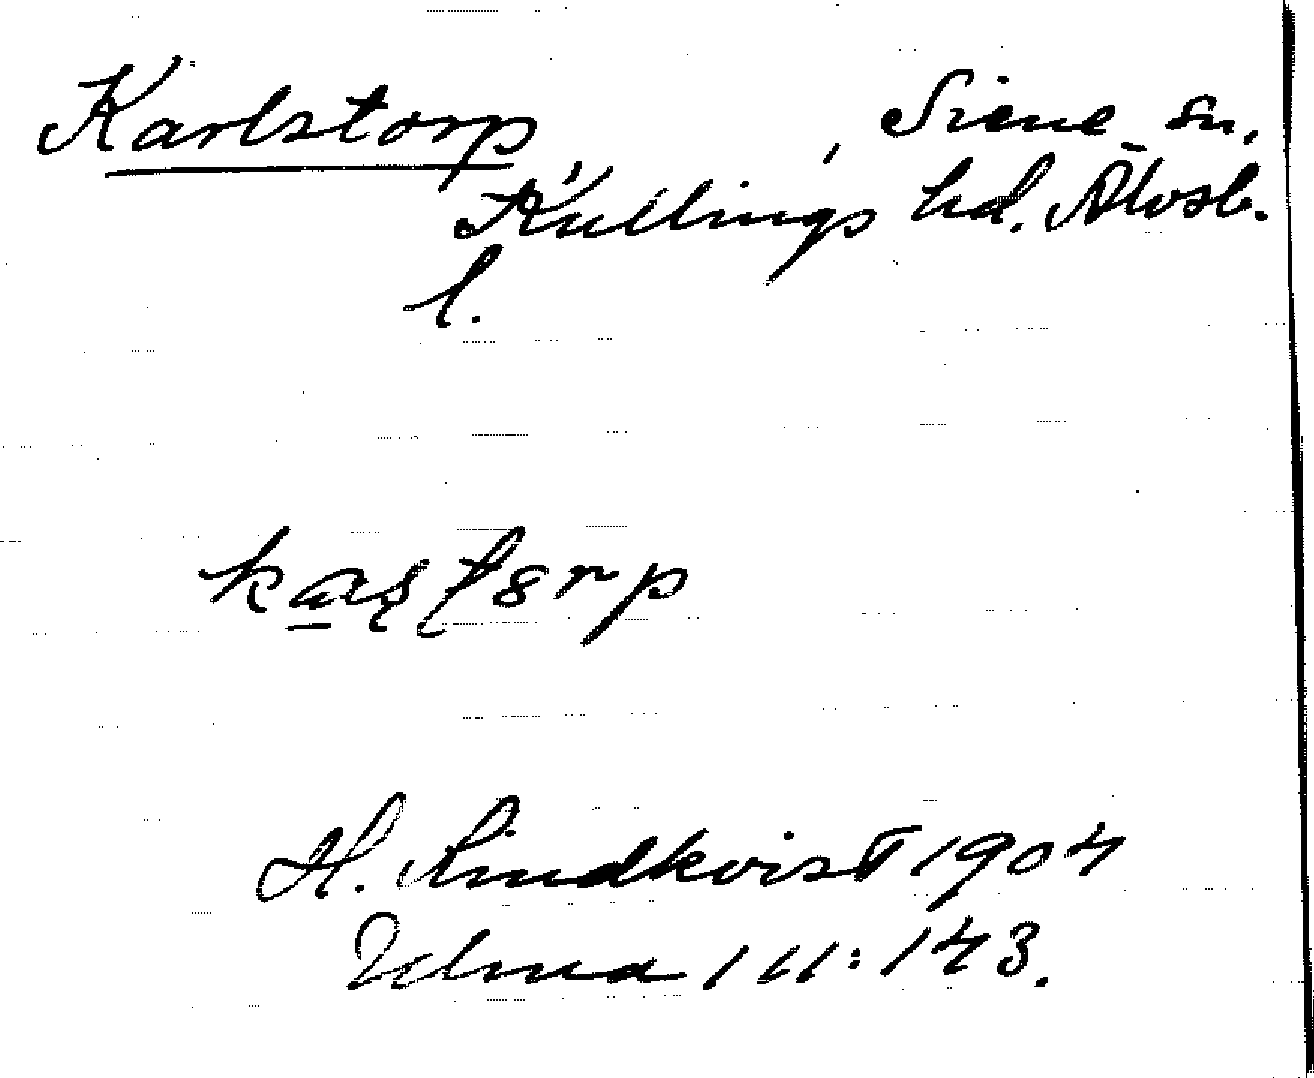 Karlstorp, Siene sn,
Kullings hd. Älvsb.
l.
H. Lindkvist 1904
Ulma 111:143.